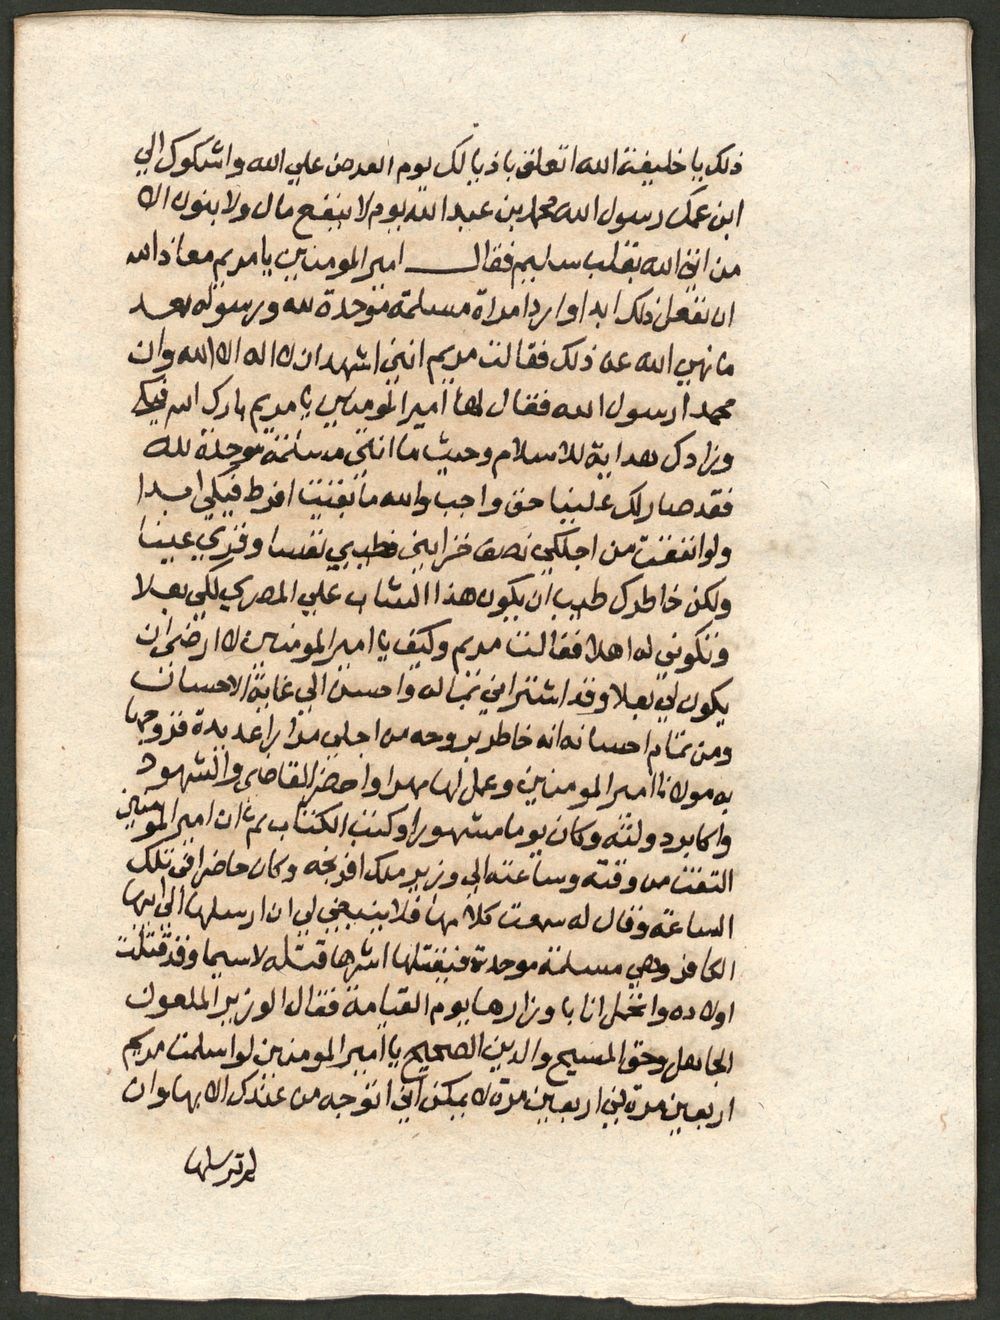 ذلك يا خليفة الله اتعلق باذيالك يوم العرض علي الله واشكوك الي
ابن عمك رسول الله محمد بن عبد الله يوم لا ينفع مال ولا بنون الا
من اتي الله بقلب سليم فقال امير المومنين يا مريم معاذ الله
ان نفعل ذلك ابدا وارد امراة مسلمة موحدة لله ورسوله بعد
ما نهي الله عن ذلك فقالت مريم انني اشهد ان لا اله الا الله وان
محمدا رسول الله فقال لها امير المومنين يا مريم بارك الله فيكي
وزادك هداية للاسلام وحيث ما انتي مسلمة موحدة لله
فقد صار لك علينا حق واجب والله ما بقيت افرط فيكي ابدا
ولو انفقت من اجلكي نصف خزايني فطيبي نفسا وقري عينا
ولكن خاطرك طيب ان يكون هذا الشاب علي المصري لكي بعلا
وتكوني له اهلا فقالت مريم وكيف يا امير المومنين لا ارضي ان
يكون لي بعلا وقد اشتراني بماله واحسن الي غاية الاحسان
ومن تمام احسانه انه خاطر بروحه من اجلي مرارا عديدة فزوجها
به مولانا امير المومنين وعمل لها مهرا واحضر القاضي والشهود
واكابر دولته وكان يوما مشهورا وكتب الكتاب ثم ان امير المومنين
التفت من وقته وساعته الي وزير ملك افرنجه وكان حاضرا في تلك
الساعة وقال له سمعت كلامها فلا ينبغي لي ان ارسلها الي ابيها
الكافر وهي مسلمة موحدة فيقتلها اشرها قتله لا سيما وقد قتلت
اولاده واتحمل انا باوزارها يوم القيامة فقال الوزير الملعون
الجاهل وحق المسيح والدين الصحيح يا امير المومنين لو اسلمت مريم
اربعين مرة في اربعين مرة لا يمكن اني اتوجه من عندك الا بها وان
لم ترسلها